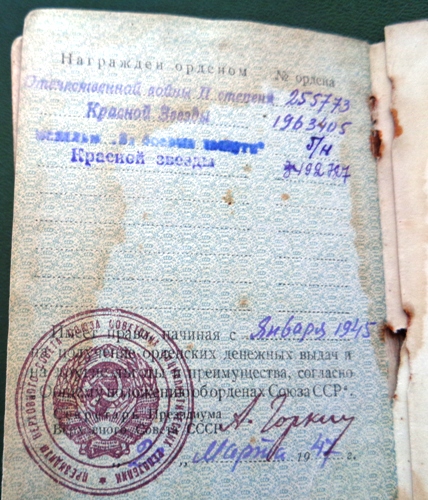 Награжден орденом № ордена
Отечественной войны II степени 255773
Красной Звезды 1963405
медалью "За боевые заслуги" б/н
Красной звезды
Имеет право, начиная с Января 1945
на получение орденских денежных выдач и
на льготы и преимущества, согласно
Общему положению об орденах Союза ССР.
Секретарь Президиума
Верховного Совета СССР А. Горкин
Марта 1947 г.